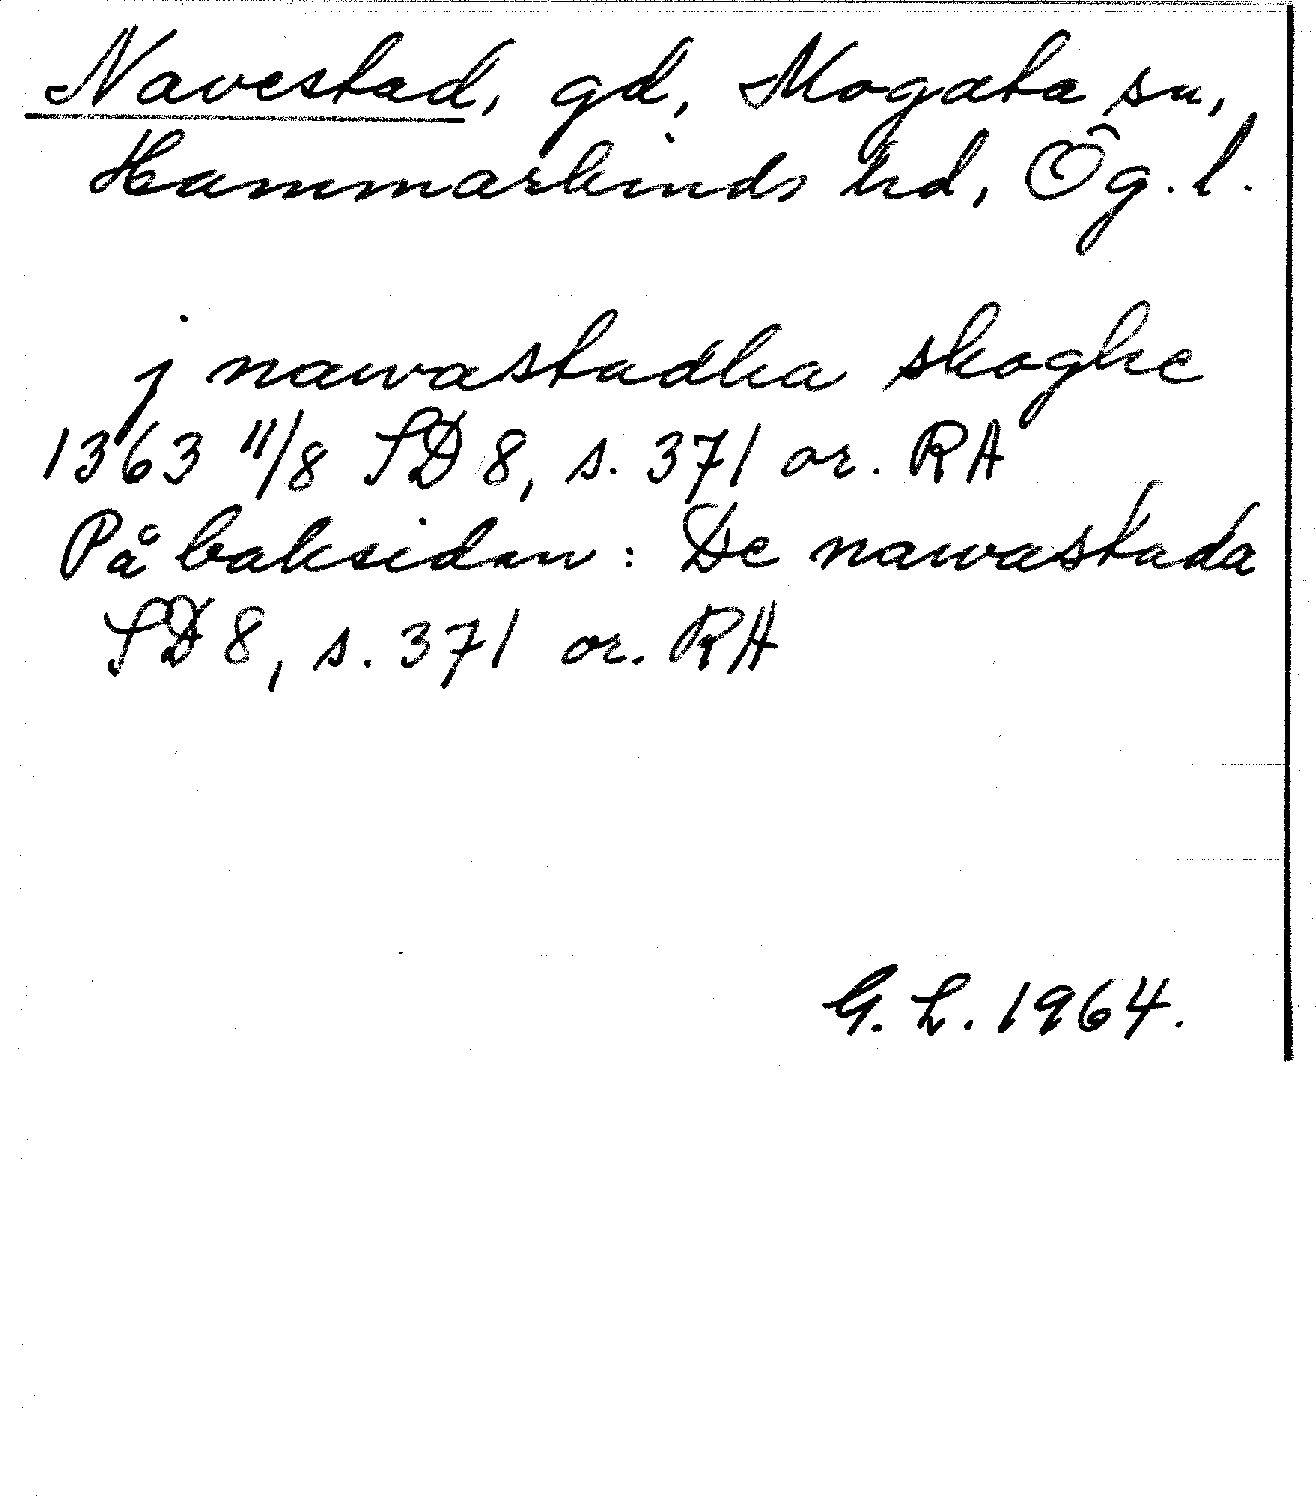 Navestad, gd, Mogata sn,
Hammarkinds hd, Ög. l.
j nawastadha skoghe
1363 11/8 SD 8, s. 371 or. RA
På baksidan: De nawastada
SD 8, s. 371 or. RA
G. L. 1964.